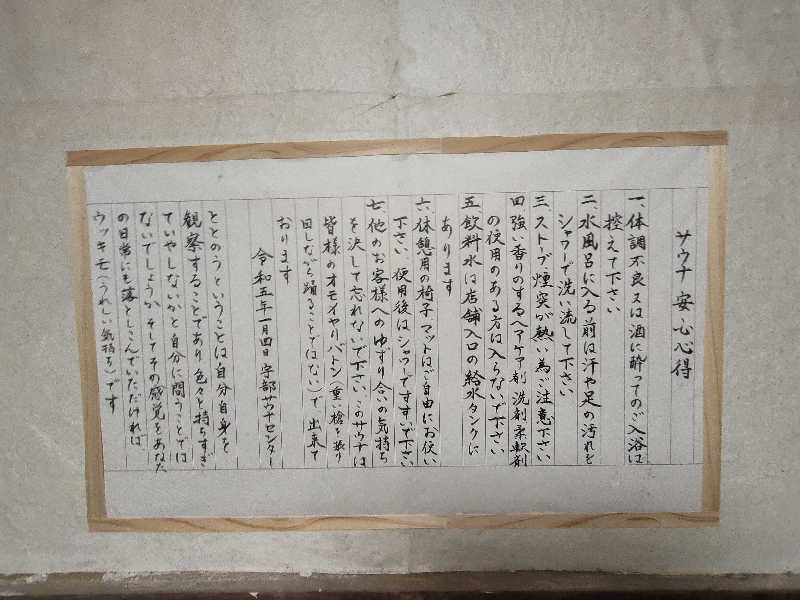 サウナ 安心心得
一、体調不良又は酒に酔ってのご入浴は
控えて下さい
二、水風呂に入る前は汗や足の汚れを
シャワーで洗い流して下さい
三、ストーブ煙突が熱い為ご注意下さい
四、強い香りのするヘアケア剤 洗剤 柔軟剤
の使用のある方は入らないで下さい
五、飲料水は店舗入口の給水タンクに
あります
六、休憩用の椅子 マットはご自由にお使い
下さい、使用後はシャワーですすいで下さい
七、他のお客様へのゆずり合いの気持ち
を決して忘れないで下さい、このサウナは
皆様のオモイヤリバトン(重い槍を振り
回しながら踊ることではない)で、出来て
おります
令和五年一月四日 宇部サウナセンター
ととのうということは自分自身を
観察することであり色々と持ちすぎ
ていやしないかと自分に問うことでは
ないでしょうか そしてその感覚をあなた
の日常にも落としこんでいただければ、
ウッキモ(うれしい気持ち)です